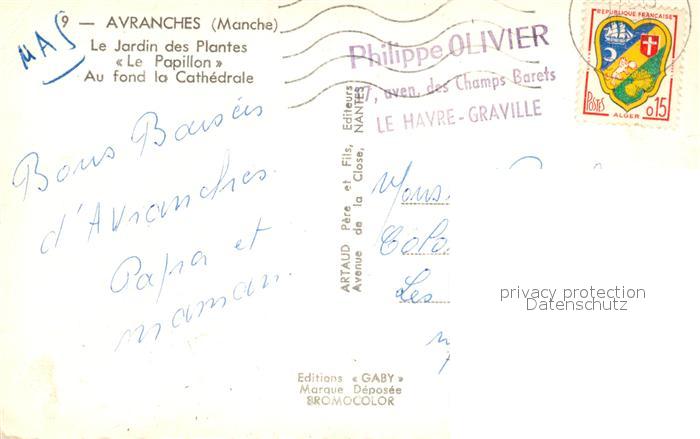 9 — AVRANCHES (Manche)
MAS
Le Jardin des Plantes
« Le Papillon »
Au fond la Cathédrale
Bons Baisers
d'Avranches.
Papa et
maman.
ARTAUD Père et Fils, Editeurs
Avenue de la Close, NANTES
Editions « GABY »
Marque Déposée
BROMOCOLOR
Philippe OLIVIER
7, aven. des Champs Barets
LE HAVRE-GRAVILLE
REPUBLIQUE FRANCAISE
POSTES
0,15
ALGER
Mons
Colo
Les
privacy protection
Datenschutz